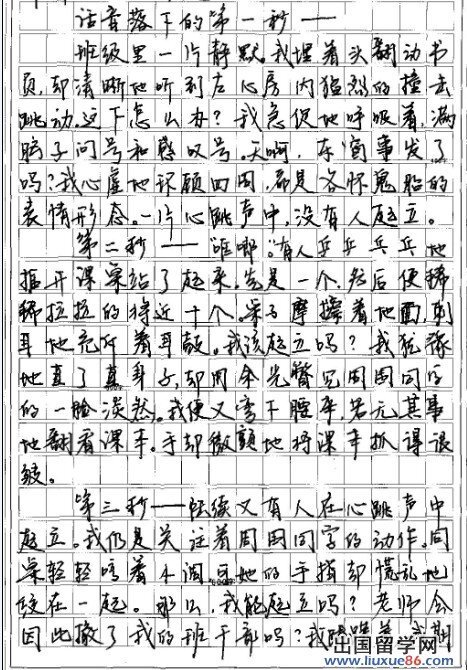 话音落下的第一秒——
班级里一片静默。我埋着头翻动书
页,却清晰地听到左心房内猛烈的撞击
跳动。这下怎么办?我急促地呼吸着,满
脑子问号和感叹号。天啊,东窗事发了
吗?我心虚地环顾四周,都是各怀鬼胎的
表情形态。一片心跳声中,没有人起立。
第二秒——"哐啷。"有人乒乒乓乓地
推开课桌站了起来。先是一个,然后便稀
稀拉拉的将近十个。桌子摩擦着地面,刺
耳地充斥着耳鼓。我该起立吗?我犹豫
地直了直身子,却用余光瞥见周围同学
的一脸淡然。我便又弯下腰来,若无其事
地翻看课本。手却微颤地将课本抓得很
皱。
第三秒——陆续又有人在心跳声中
起立。我仍是关注着周围同学的动作。同
桌轻轻哼着小调可她的手指却慌乱地
绞在一起。那么,我能起立吗?老师会
因此撤了我的班干部吗?我
出国留学网
www.liuxue86.com